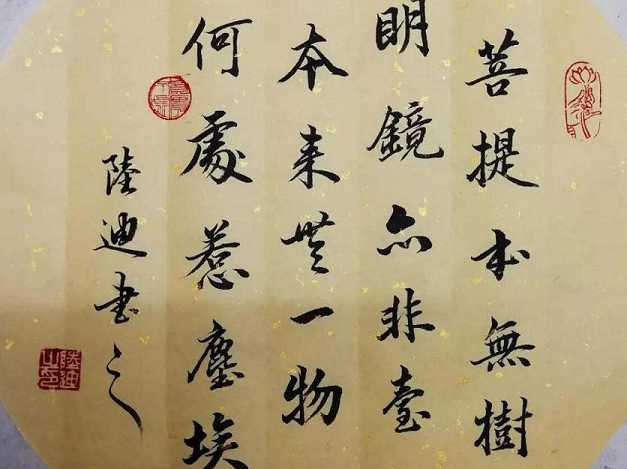 菩提本無樹
明鏡亦非臺
本来無一物
何處惹塵埃
陸迪书之
陸迪